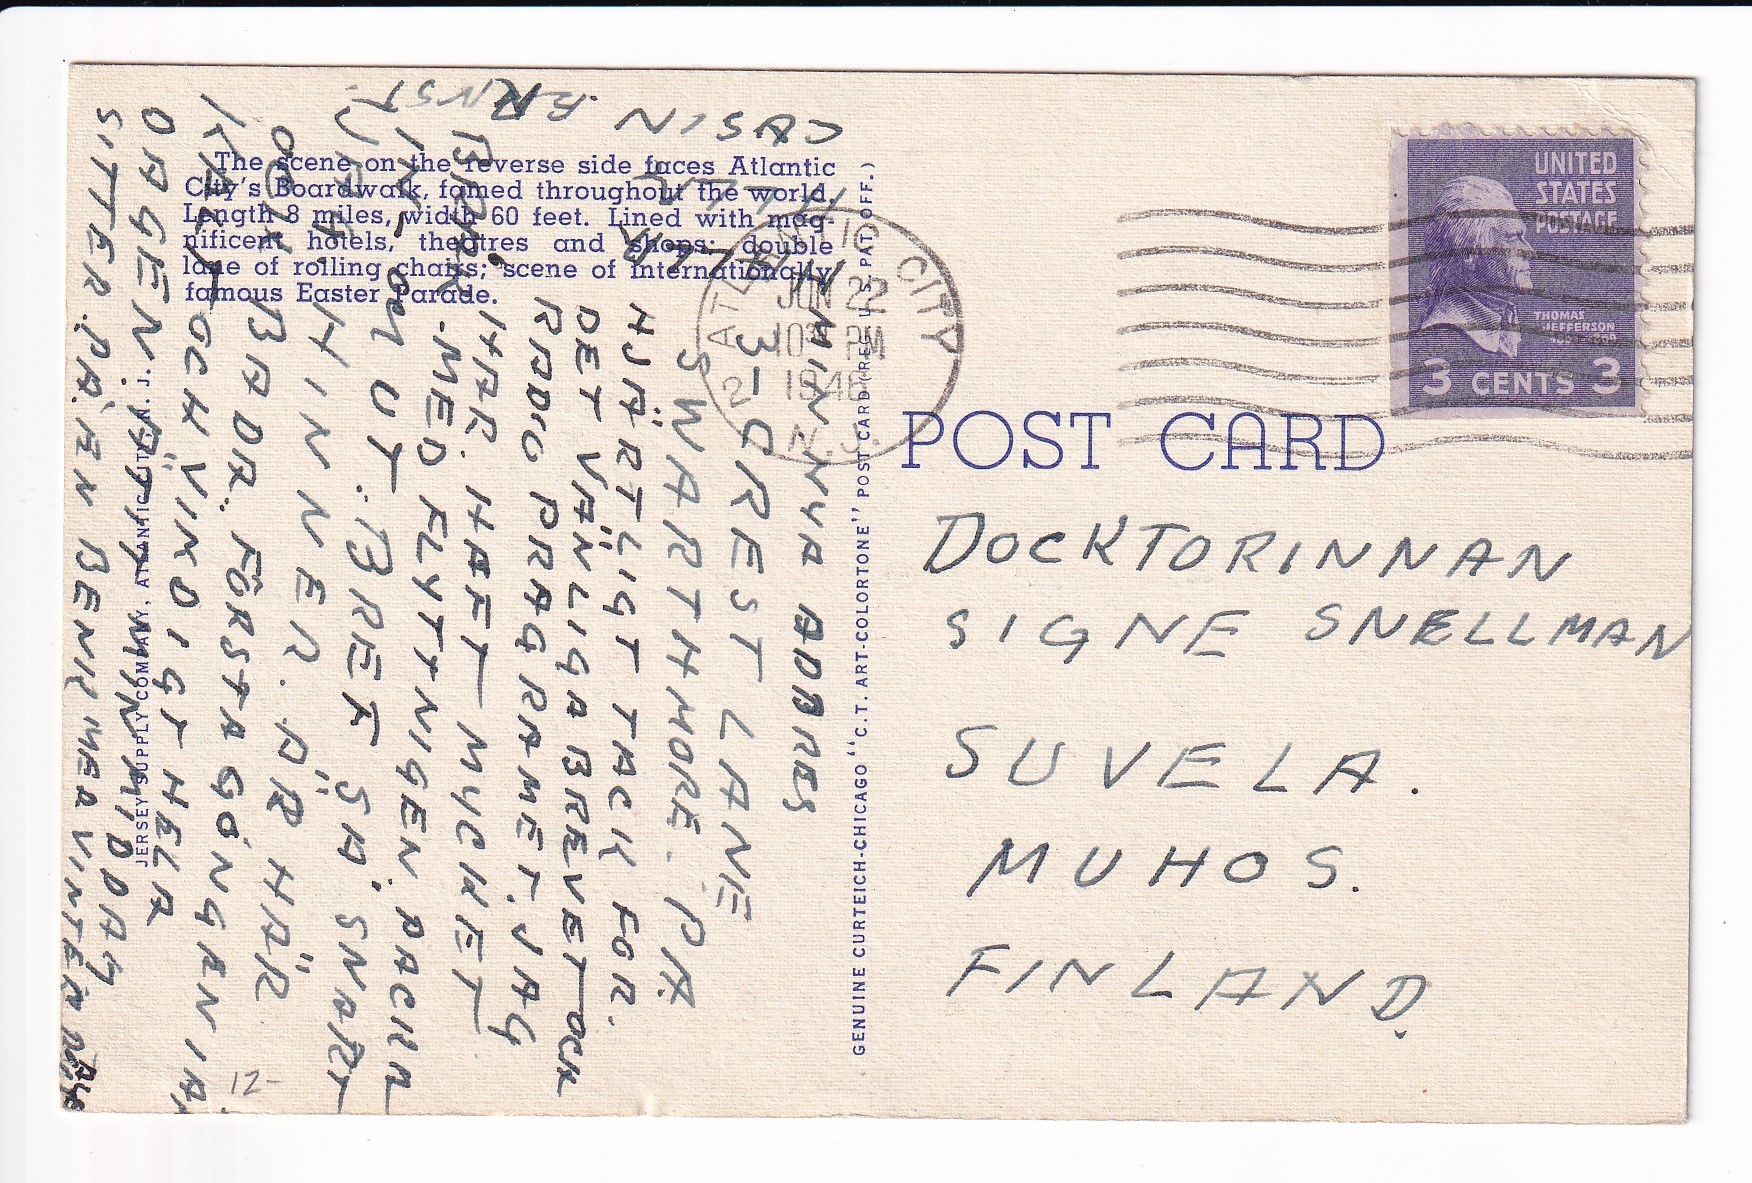 The scene on the reverse side faces Atlantic
City's Boardwalk, famed throughout the world.
Length 8 miles, width 60 feet. Lined with mag-
nificent hotels, theatres and shops; double
lane of rolling chairs; scene of internationally
famous Easter Parade.
MIN NYA ADDRES
3-CREST LANE
SWARTHMORE. PA
HJÄRTLIGT TACK FOR.
DET VÄNLIGA BREVET OCH
RADIO PRAGRAMET. JAG
HAR. HAFT MYCKET
MED FLYTTNIGEN. PACKA
IN- UT. BREF SÅ SNART
JAG. HINNER. ÄR HÄR
OCH BADA. FÖRSTA GÅNGEN I
KALLT OCH VINDIGT HELA
DAGEN. MIN MIDDAG
SITTER. PÅ EN BENK MER VINTER
CASIN
12-
JERSEY SUPPLY COMPANY, ATLANTIC CITY, N. J.
GENUINE CURTEICH-CHICAGO "C. T. ART-COLORTONE" POST CARD (REG. U. S. PAT. OFF.)
ATLANTIC CITY
JUN 22
10 PM
1946
N.J.
2
UNITED
STATES
POSTAGE
THOMAS
JEFFERSON
3 CENTS 3
POST CARD
DOCKTORINNAN
SIGNE SNELLMAN
SUVELA.
MUHOS.
FINLAND.